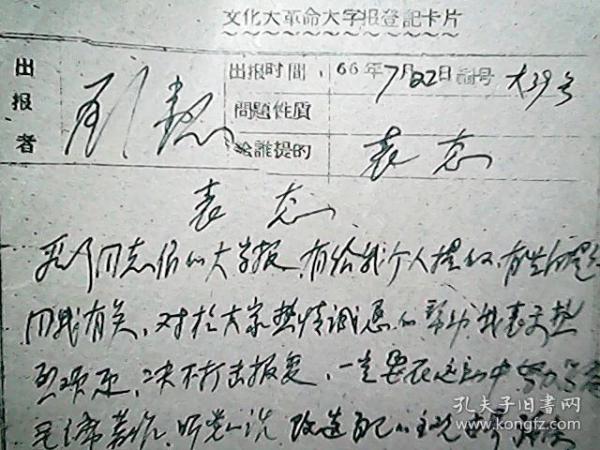 文化大革命大字报登記卡片
出报者
出报时間 66年7月22日 討号 大39号
問題性質
給誰提的 表态
表态
同志们的大字报,有给我个人提的,有些问题
同我有关,对于大家热情诚恳的帮助,我表示热
烈欢迎,决不打击报复,一定要在运动中努力学
毛主席著作,听党的话,改造自己的主观世界
孔夫子旧书网
www.kongfz.com